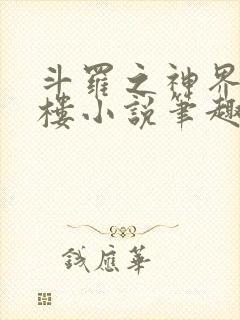 斗羅之神界
樓小說筆趣
錢應華